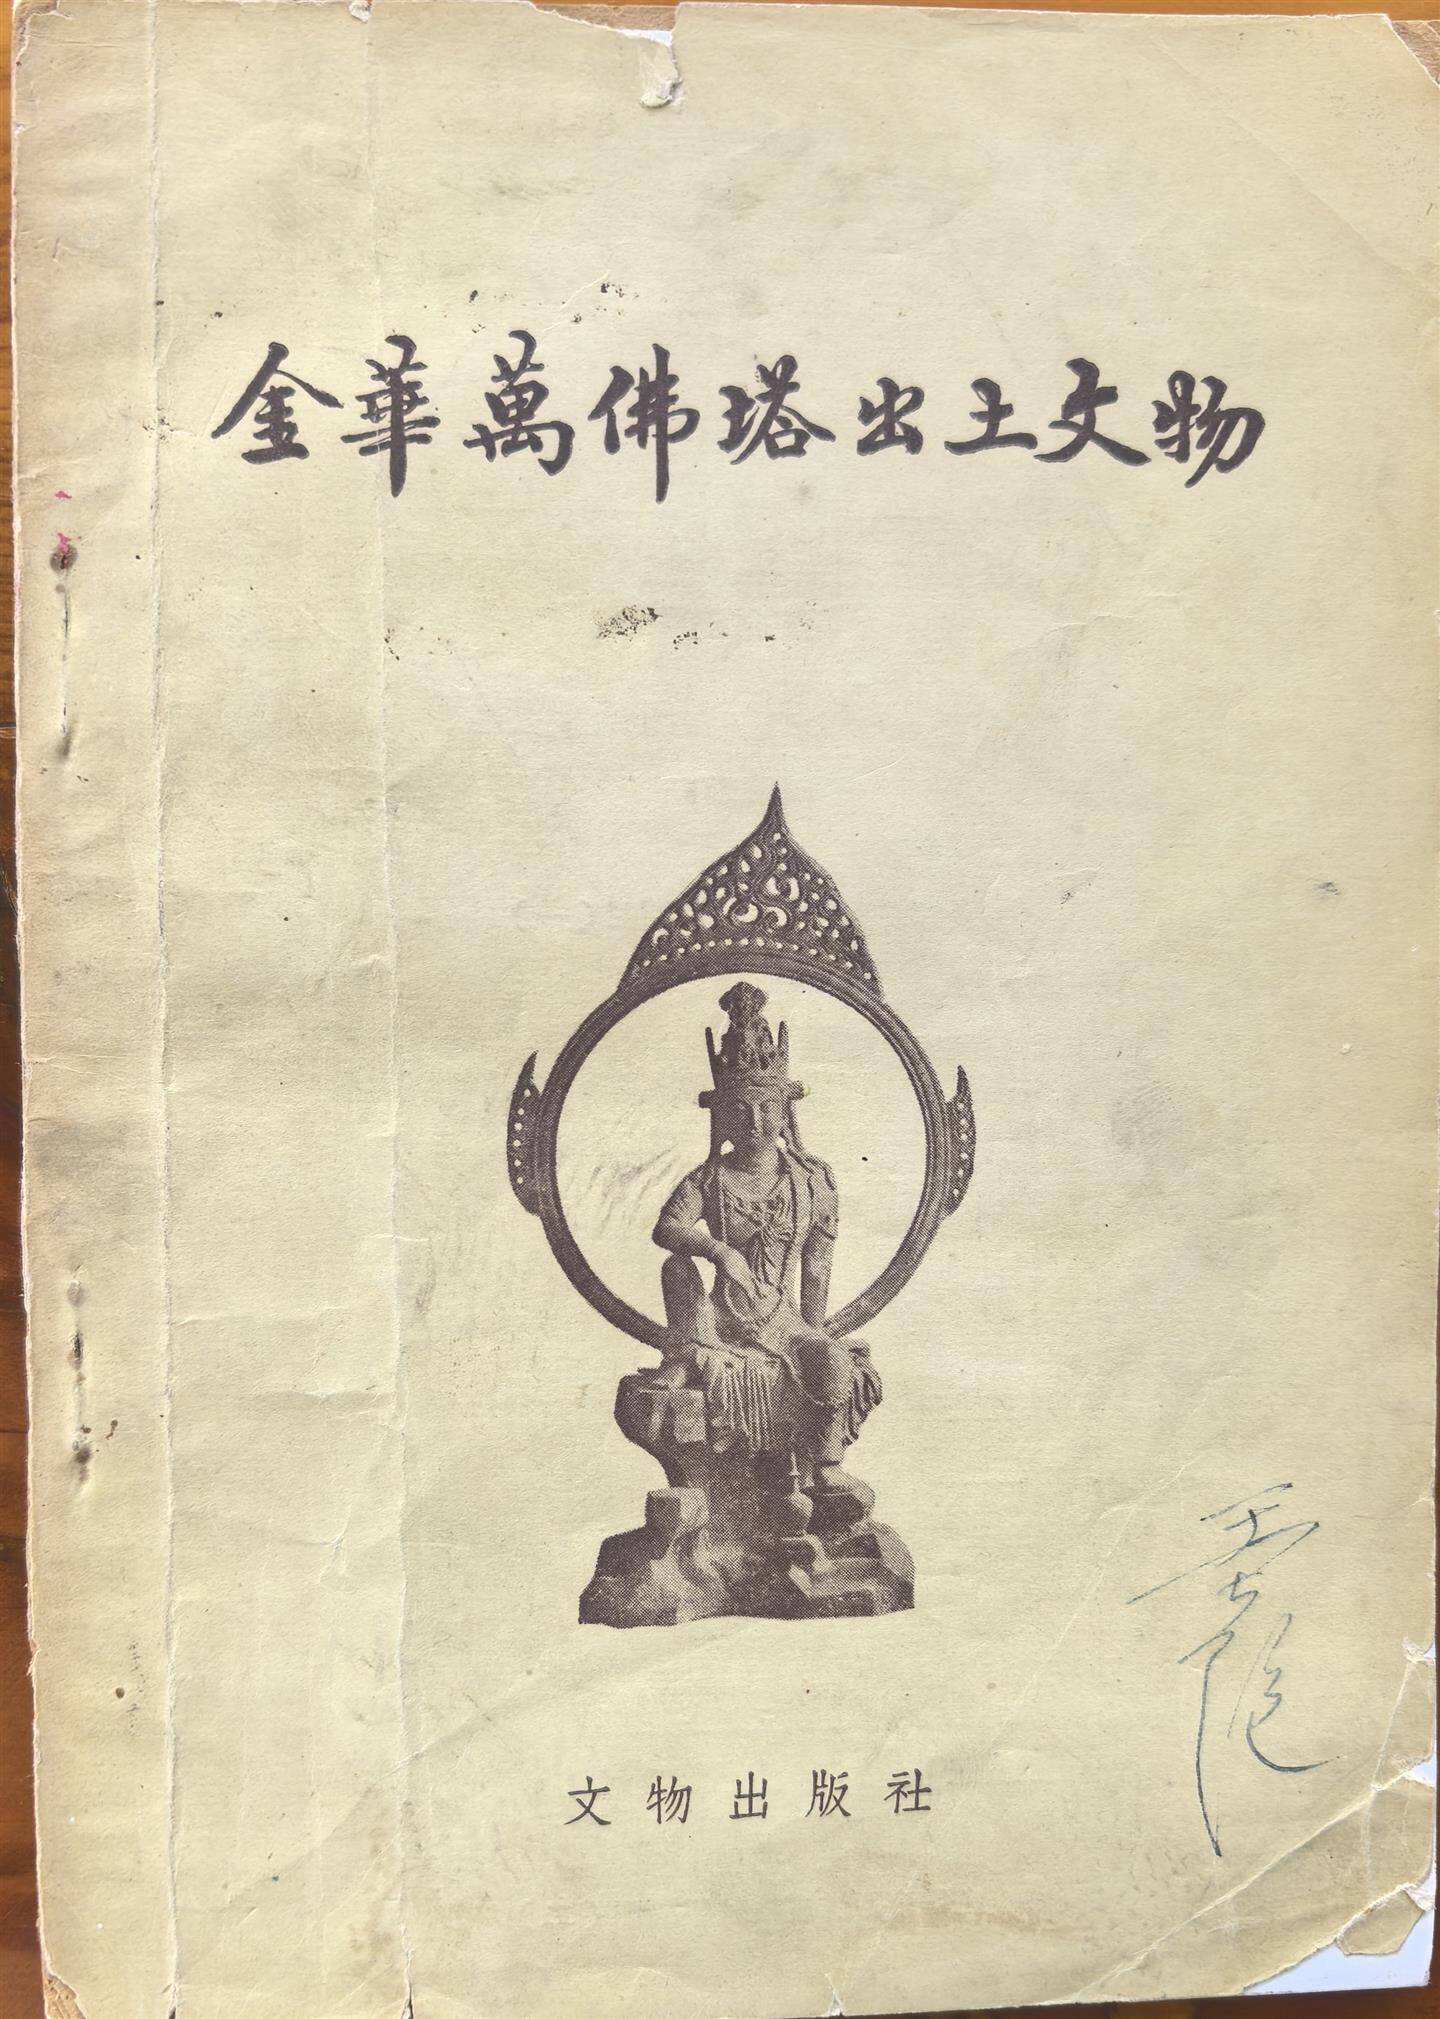 金華萬佛塔出土文物
文物出版社